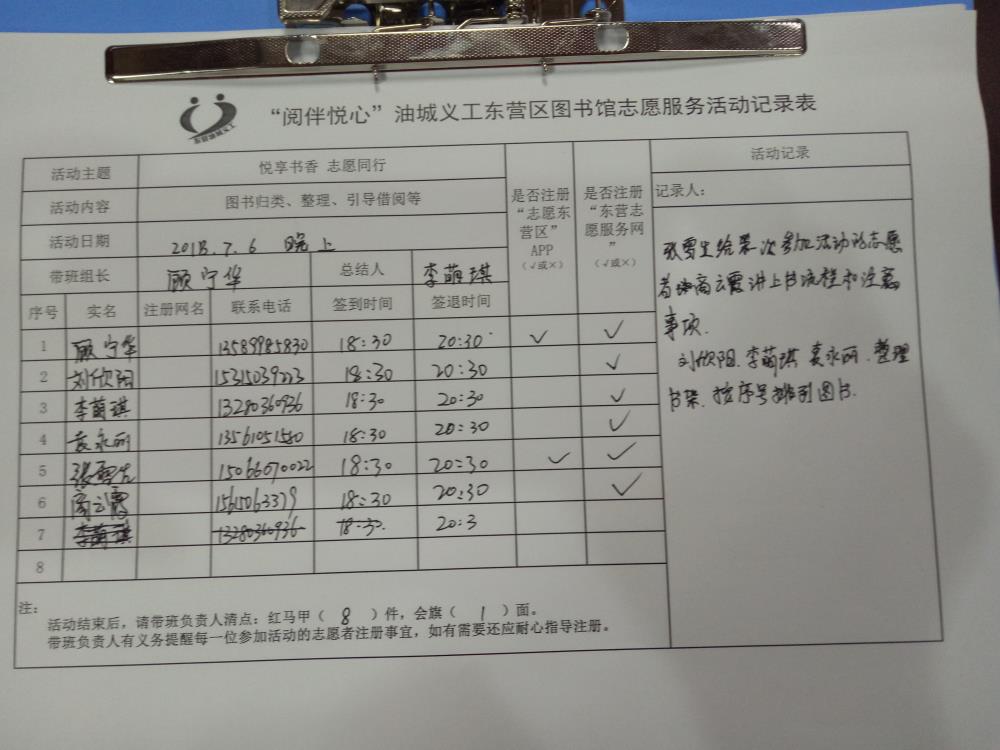 东营油城义工
“阅伴悦心”油城义工东营区图书馆志愿服务活动记录表
活动主题 悦享书香 志愿同行
活动内容 图书归类、整理、引导借阅等
活动日期 2018.7.6 晚上
带班组长 顾宁华 总结人 李萌琪
序号 实名 注册网名 联系电话 签到时间 签退时间
是否注册
“志愿东
营区”
APP
(√或×)
是否注册
“东营志
愿服务网
”
(√或×)
1 顾宁华 13589985830 18:30 20:30 √ √
2 刘欣阳 15315039223 18:30 20:30 √
3 李萌琪 13280360936 18:30 20:30 √
4 袁永丽 13561051580 18:30 20:30 √
5 张雪生 15066070022 18:30 20:30 √ √
6 商云霞 15615063379 18:30 20:30 √
7 李萌琪 13280360936 18:30. 20:3
8
活动记录
记录人:
张雪生给第一次参加活动的志愿
者商云霞讲上书流程和注意
事项.
刘欣阳.李萌琪 袁永丽.整理
书架.按序号排列图书.
注:
活动结束后,请带班负责人清点:红马甲( 8 )件,会旗( 1 )面。
带班负责人有义务提醒每一位参加活动的志愿者注册事宜,如有需要还应耐心指导注册。